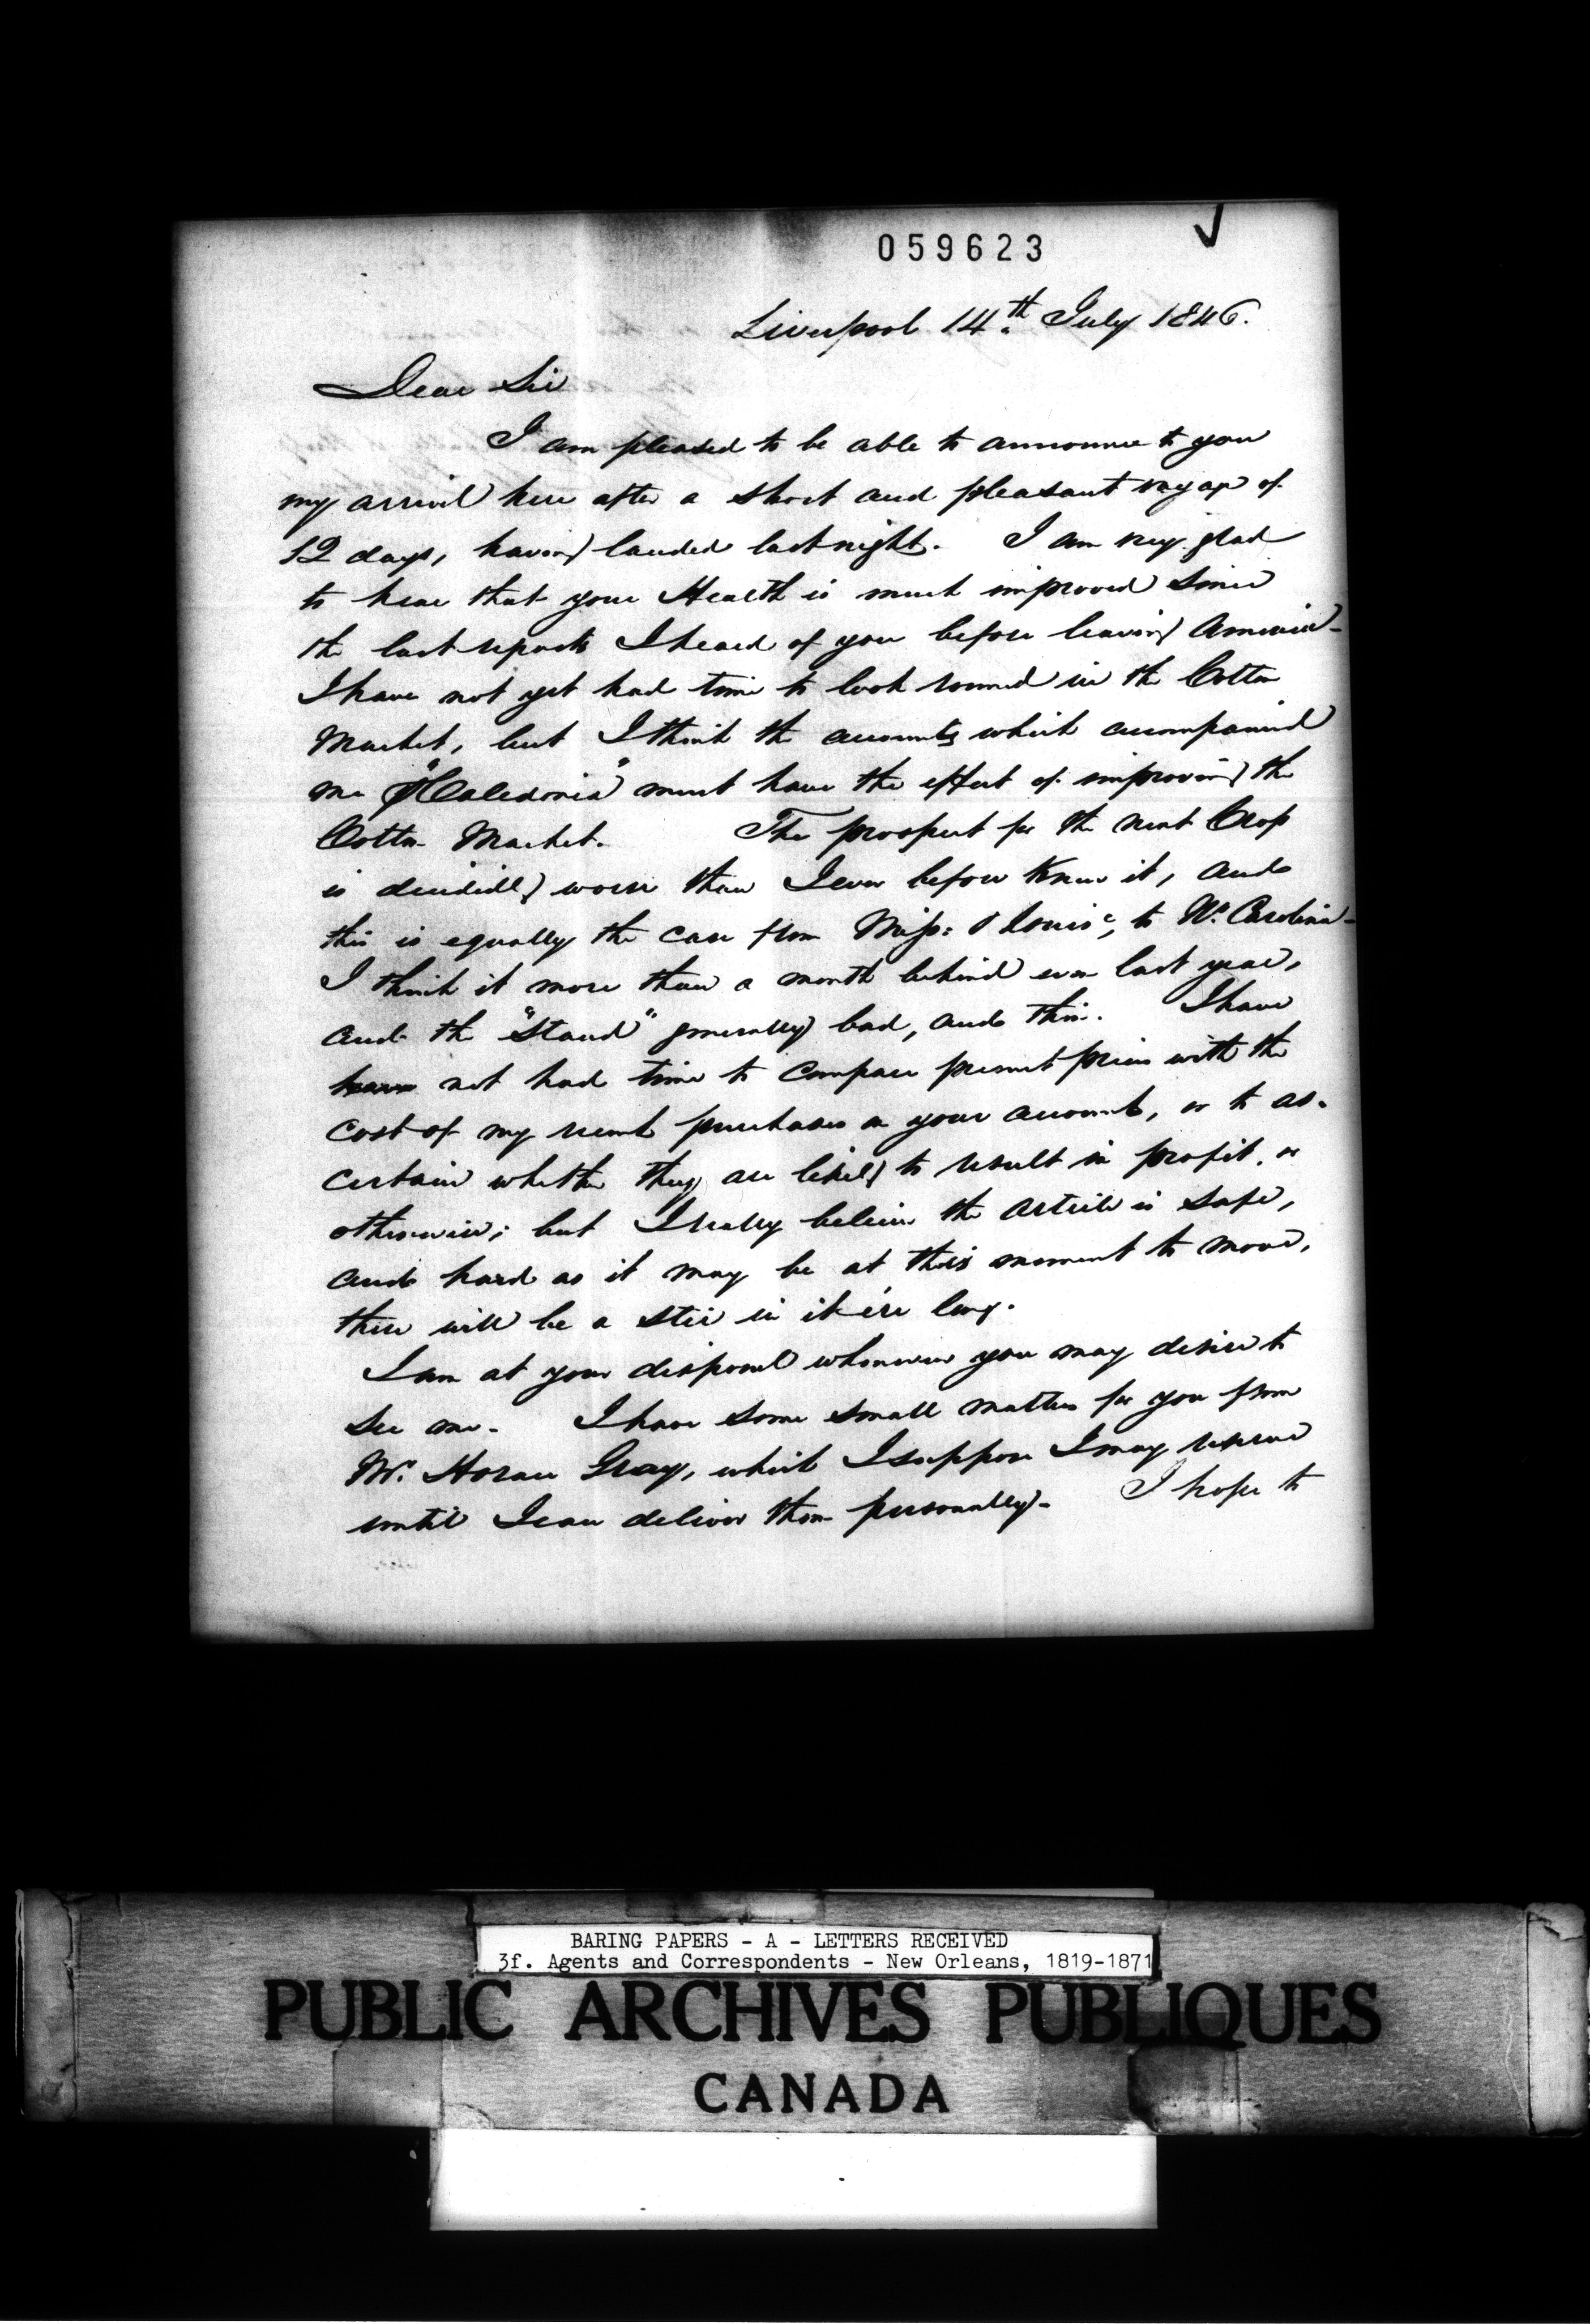 059623
Liverpool 14th July 1846.
Dear Sir
I am pleased to be able to announce to you
my arrival here after a short and pleasant voyage of
12 days, having landed last night. I am very glad
to hear that your Health is much improved since
the last reports I heard of you before leaving America-
I have not yet had time to look round in the Cotton
Market, but I think the accounts which accompanied
me "Caledonia" must have the effect of improving the
Cotton Market. The prospect for the next Crop
is decidedly worse than I ever before knew it, and
this is equally the case from Miss: & Louisa, to No. Carolina-
I think it more than a month behind even last year,
and the "Stand" generally bad, and thin. I have
have not had time to compare present prices with the
cost of my recent purchases on your account, or to as-
certain whether they are likely to result in profit, or
otherwise; but I really believe the article is safe,
and hard as it may be at this moment to move,
there will be a stir in it ere long.
I am at your disposal whenever you may desire to
see me. I have some small matters for you from
Mr. Horace Gray, which I suppose I may reserve
until I can deliver them personally- I hope to
BARING PAPERS - A - LETTERS RECEIVED
3f. Agents and Correspondents - New Orleans, 1819-1871
PUBLIC ARCHIVES PUBLIQUES
CANADA